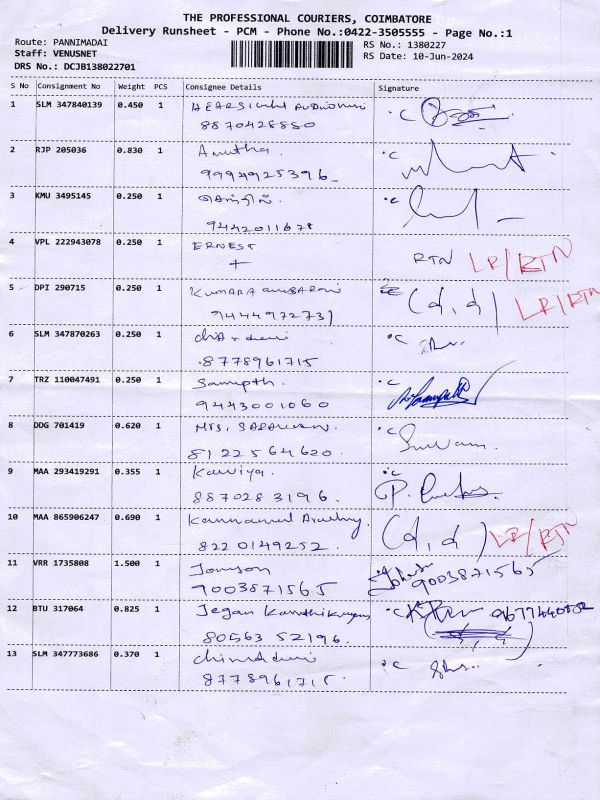 THE PROFESSIONAL COURIERS, COIMBATORE
Delivery Runsheet - PCM - Phone No.:0422-3505555 - Page No.:1
Route: PANNIMADAI
Staff: VENUSNET
DRS No.: DCJB138022701
RS No.: 1380227
RS Date: 10-Jun-2024
S No Consignment No Weight PCS Consignee Details Signature
1 SLM 347840139 0.450 1
8870428880
2 RJP 205036 0.830 1 Amutha.
9994925396
3 KMU 3495145 0.250 1
9442011678
4 VPL 222943078 0.250 1 ERNEST RTN LR/RTN
5 DPI 290715 0.250 1 (d,d) LR/RTN
9444972731
6 SLM 347870263 0.250 1
8778961715
7 TRZ 110047491 0.250 1 Sampath.
9443001060
8 DDG 701419 0.620 1 MRS.
8122564620.
9 MAA 293419291 0.355 1 Kaviya.
8870283196.
10 MAA 865906247 0.690 1 (d,d) LR/RTN
8220149252.
11 VRR 1735808 1.500 1 9003871565
9003871565
12 BTU 317064 0.825 1 Jegan
80563 52196.
13 SLM 347773686 0.370 1
8778961715.